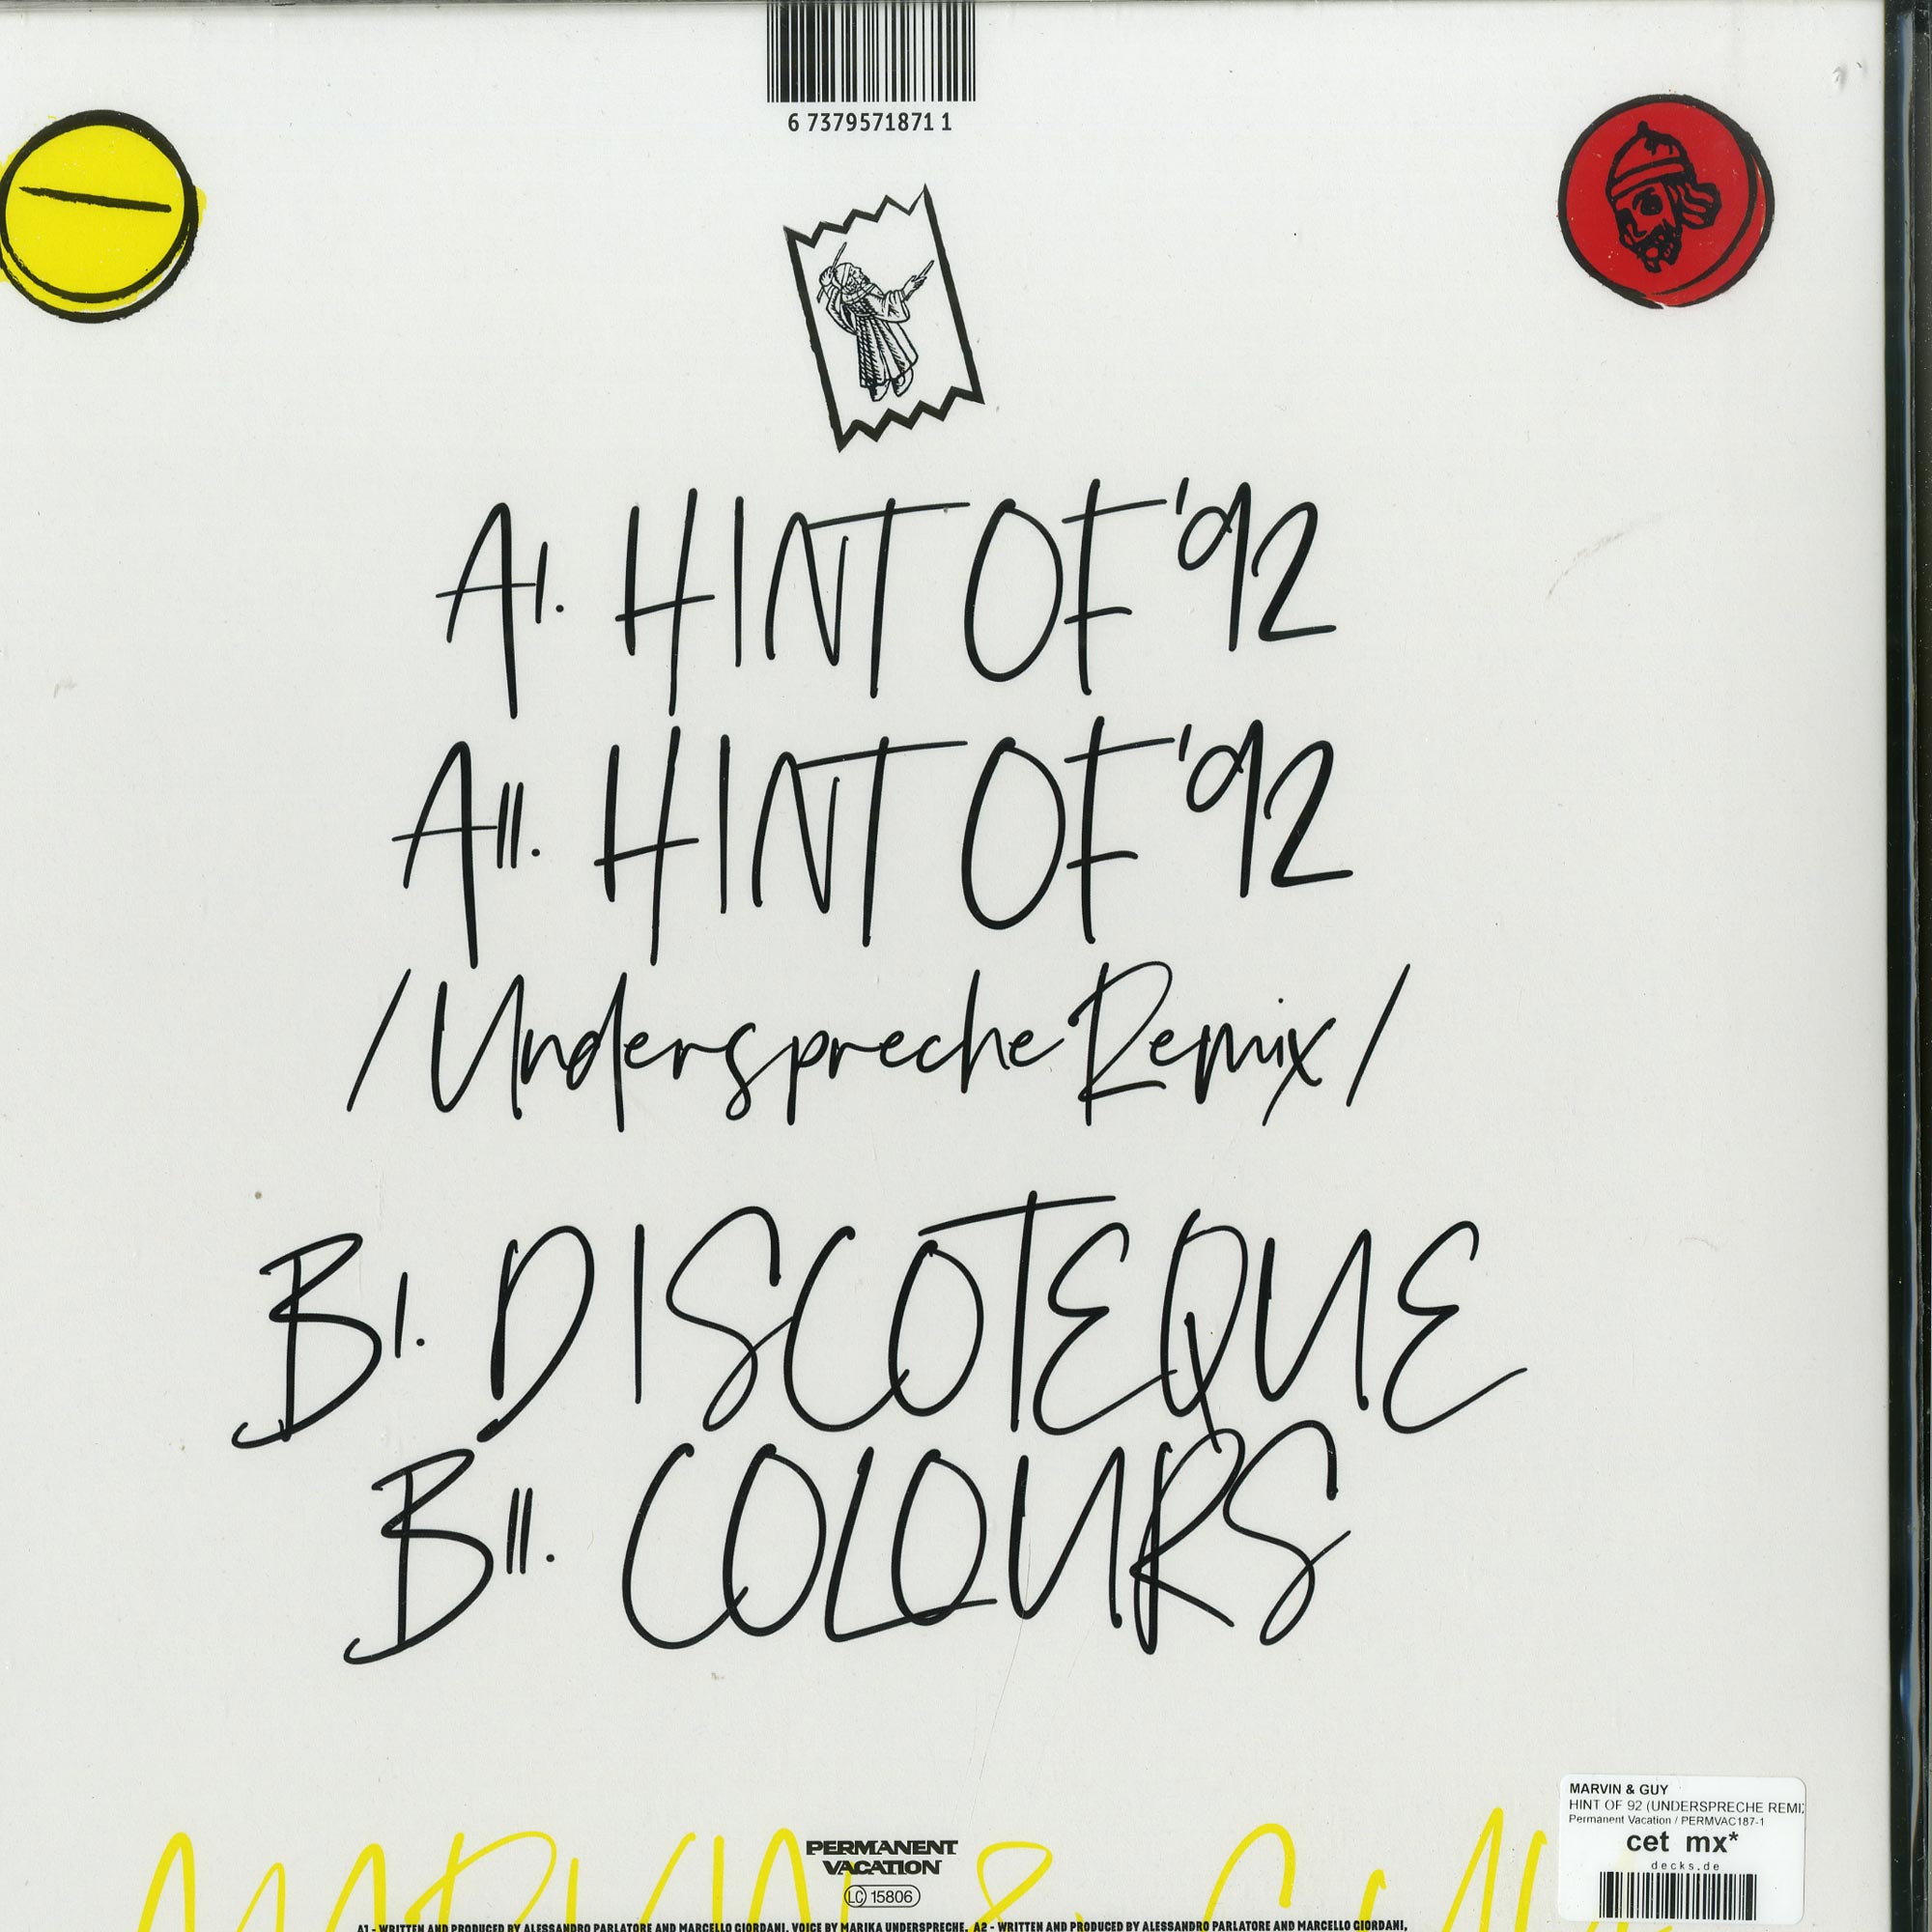 6 73795718711
AI. HINT OF '92
AII. HINT OF '92
/Underspreche Remix/
BI. DISCOTEQUE
BII. COLOURS
MARVIN & GUY
PERMANENT
VACATION
LC 15806
A1 - WRITTEN AND PRODUCED BY ALESSANDRO PARLATORE AND MARCELLO GIORDANI. VOICE BY MARIKA UNDERSPRECHE. A2 - WRITTEN AND PRODUCED BY ALESSANDRO PARLATORE AND MARCELLO GIORDANI,
MARVIN & GUY
HINT OF 92 (UNDERSPRECHE REMI
Permanent Vacation / PERMVAC187-1
cet mx*
decks.de